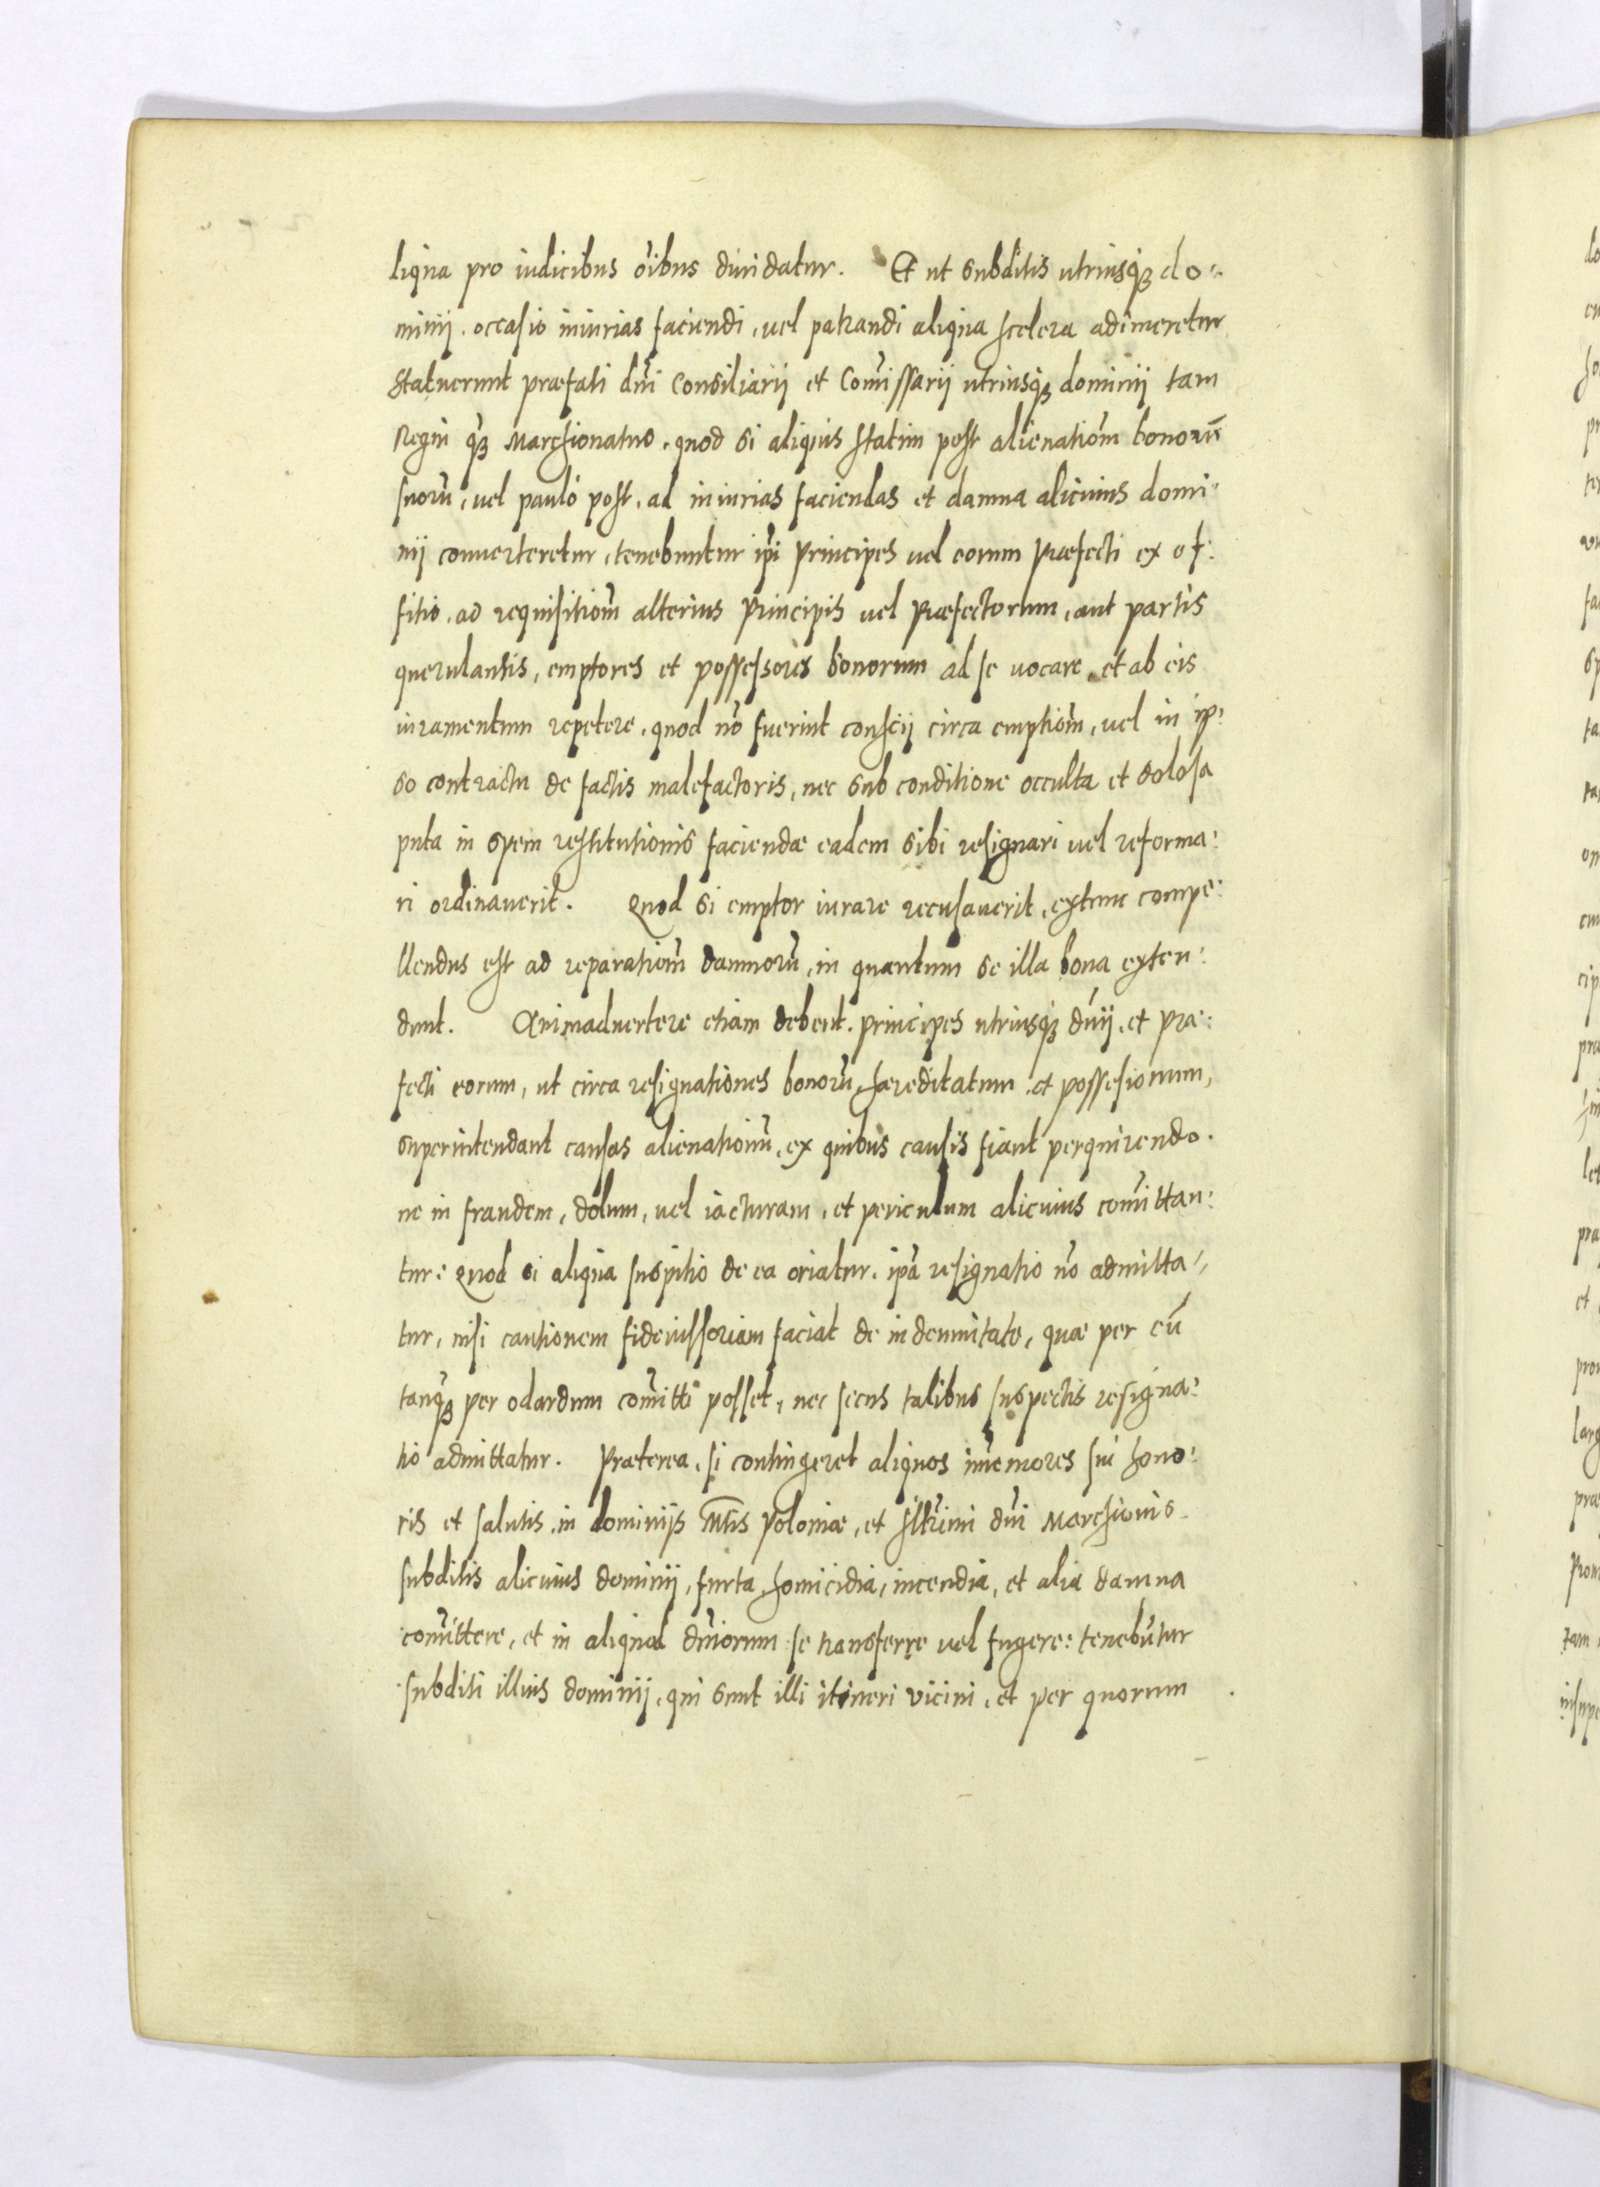 liqua pro iudicibus oĩbus diuidatur. Et ut subditis utriusq; do-
minij. occasio iniurias faciendi, uel patrandi aliqua scelera adimeretur
statuerunt præfati dñi Consiliarij et Com̃issarij utriusq; dominij tam
Regni q; Marchionatus. quod si aliquis statim post alienatiom̃ bonorũ
suorũ, uel pauló post, ad iniurias faciendas et damna alicuius domi-
nij conuerteretur, tenebuntur ip̃i Principes uel eorum Præfecti ex of-
fitio. ad requisitiom̃ alterius Principis uel Præfectorum, aut partis
querulantis, emptores et possessores bonorum ad se uocare, et ab eis
iuramentum repetere, quod nõ fuerint conscij circa emptiom̃, uel in ip-
so contractu de factis malefactoris, nec sub conditione occulta et dolosa
puta in spem restitutionis faciendæ eadem sibi resignari uel reforma-
ri ordinauerit. Quod si emptor iurare recusauerit, extunc compe-
llendus est ad reparatiom̃ damnorũ, in quantum se illa bona exten-
dunt. Animaduertere etiam debent. principes utriusq; dñij, et præ-
fecti eorum, ut circa resignationes bonorũ, hæreditatum et possesionum,
superintendant causas alienationũ, ex quibus causis fiant perquirendo.
ne in fraudem, dolum, uel iacturam, et periculum alicuius com̃ittan-
tur: Quod si aliqua suspitio de ea oriatur. ip̃a resignatio nõ admitta-
tur, nisi cautionem fideiussoriam faciat de indemnitate, quæ per eũ
tanq; per odardum com̃itti posset, nec secus talibus suspectis resigna-
tio admittatur. Præterea, si contingeret aliquos im̃emores sui hono-
ris et salutis, in dominijs Mtis Poloniæ, et Illr̃imi dñi Marchionis
subditis alicuius dominij, furta, homicidia, incendia, et alia damna
com̃ittere, et in aliquod dñiorum se transferre uel fugere: tenebũtur
subditi illius dominij, qui sunt illi itineri vicini, et per quorum